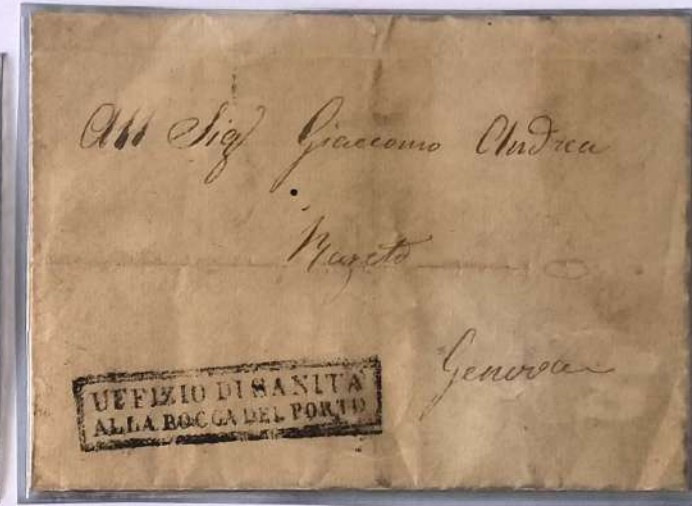 All Sig Giaccomo Andrea
Genova
UFFIZIO DI SANITA
ALLA BOCCA DEL PORTO